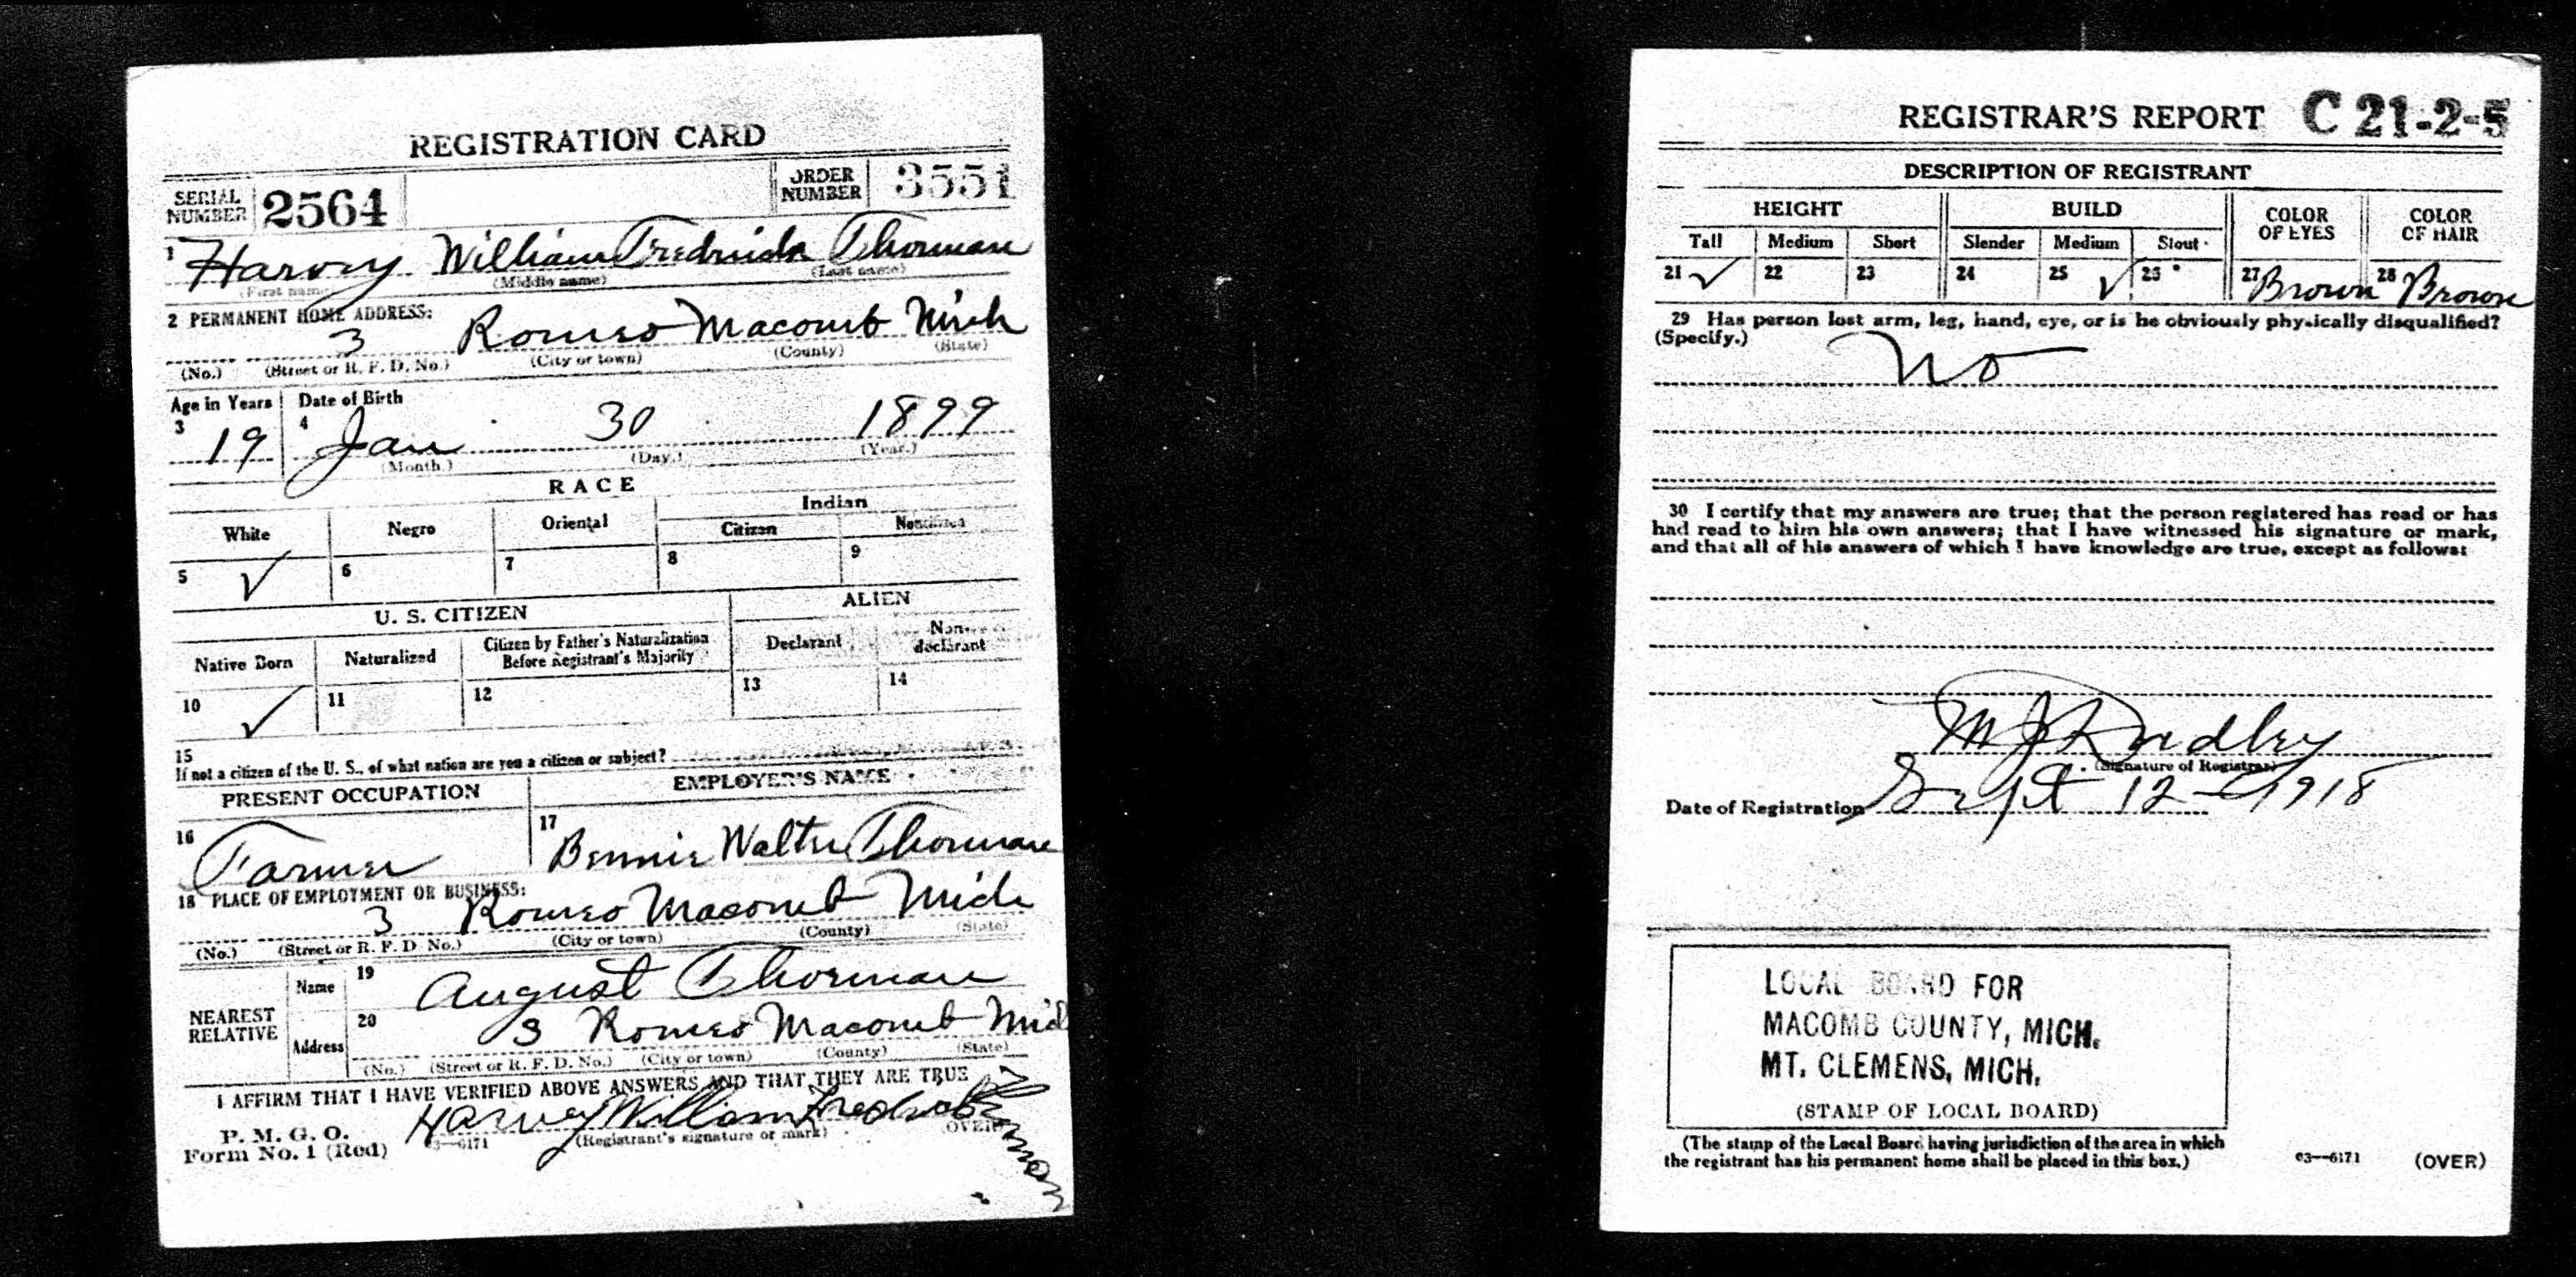 REGISTRATION CARD
SERIAL NUMBER 2564 ORDER NUMBER 3551
1 Harvey William Fredrick Thorman
(First name) (Middle name) (Last name)
2 PERMANENT HOME ADDRESS:
3 Romeo Macomb Mich
(No.) (Street or R. F. D. No.) (City or town) (County) (State)
Age in Years Date of Birth
3 19 4 Jan 30 1899
(Month.) (Day.) (Year.)
RACE
White Negro Oriental Indian
Citizen Noncitizen
5 ✓ 6 7 8 9
U. S. CITIZEN ALIEN
Native Born Naturalized Citizen by Father's Naturalization Before Registrant's Majority Declarant Non-declarant
10 ✓ 11 12 13 14
15
If not a citizen of the U. S., of what nation are you a citizen or subject?
PRESENT OCCUPATION EMPLOYER'S NAME
16 Farmer 17 Bennie Walter Thorman
18 PLACE OF EMPLOYMENT OR BUSINESS:
3 Romeo Macomb Mich
(No.) (Street or R. F. D. No.) (City or town) (County) (State)
NEAREST RELATIVE
Name 19 August Thorman
Address 20 3 Romeo Macomb Mich
(No.) (Street or R. F. D. No.) (City or town) (County) (State)
I AFFIRM THAT I HAVE VERIFIED ABOVE ANSWERS AND THAT THEY ARE TRUE
Harvey William Fredrick Thorman
P. M. G. O.
Form No. 1 (Red) 03—6171 (Registrant's signature or mark) (OVER)
REGISTRAR'S REPORT C 21-2-5
DESCRIPTION OF REGISTRANT
HEIGHT BUILD COLOR OF EYES COLOR OF HAIR
Tall Medium Short Slender Medium Stout
21 ✓ 22 23 24 25 ✓ 26 27 Brown 28 Brown
29 Has person lost arm, leg, hand, eye, or is he obviously physically disqualified?
(Specify.)
No
30 I certify that my answers are true; that the person registered has read or has
had read to him his own answers; that I have witnessed his signature or mark,
and that all of his answers of which I have knowledge are true, except as follows:
M J
(Signature of Registrar)
Date of Registration Sept 12 - 1918
LOCAL BOARD FOR
MACOMB COUNTY, MICH.
MT. CLEMENS, MICH.
(STAMP OF LOCAL BOARD)
(The stamp of the Local Board having jurisdiction of the area in which
the registrant has his permanent home shall be placed in this box.)
03—6171 (OVER)